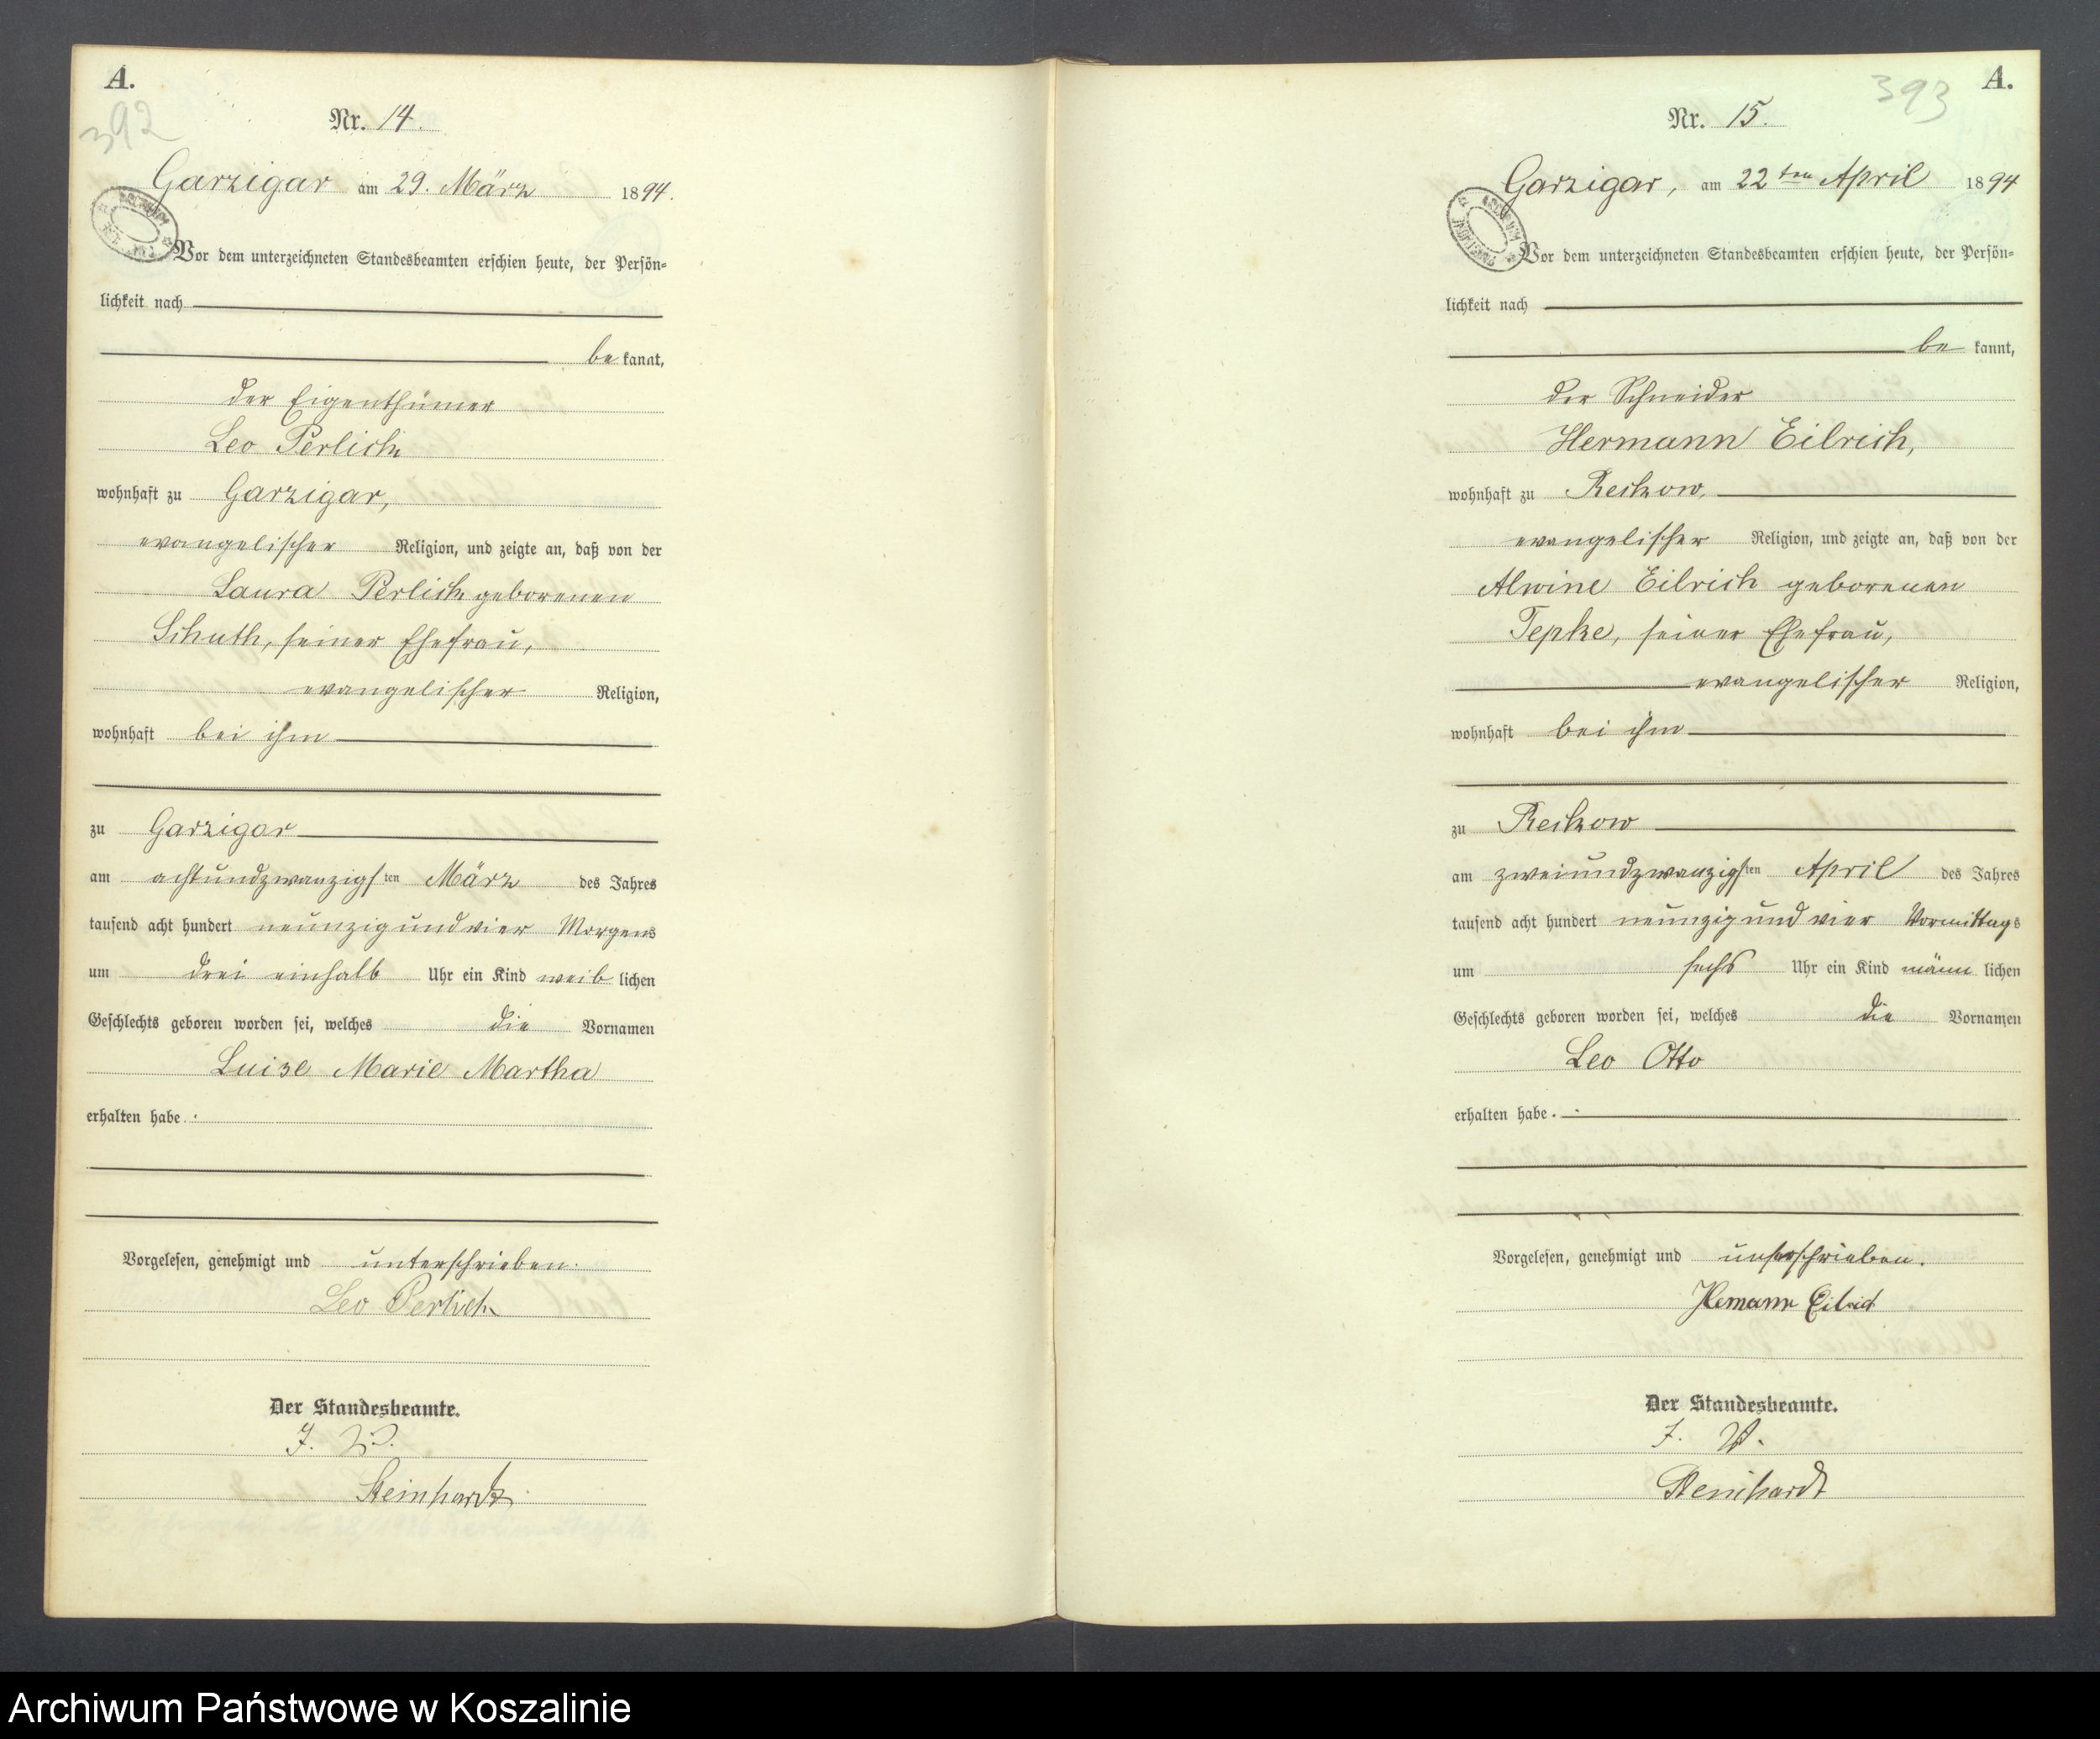 A.
392
Nr. 14.
Garzigar am 29. März 1894.
Vor dem unterzeichneten Standesbeamten erschien heute, der Persön=
lichkeit nach
be kannt,
der Eigenthümer
Leo Perlich
wohnhaft zu Garzigar,
evangelischer Religion, und zeigte an, daß von der
Laura Perlich geborenen
Schuth, seiner Ehefrau,
evangelischer Religion,
wohnhaft bei ihm
zu Garzigar
am achtundzwanzigsten März des Jahres
tausend acht hundert neunzig und vier Morgens
um drei einhalb Uhr ein Kind weib lichen
Geschlechts geboren worden sei, welches die Vornamen
Luise Marie Martha
erhalten habe.
Vorgelesen, genehmigt und unterschrieben.
Leo Perlich
Der Standesbeamte.
J. V.
Steinhardt
A.
393
Nr. 15.
Garzigar, am 22ten April 1894
Vor dem unterzeichneten Standesbeamten erschien heute, der Persön=
lichkeit nach
be kannt,
der Schneider
Hermann Eilrich,
wohnhaft zu Reckow,
evangelischer Religion, und zeigte an, daß von der
Alwine Eilrich geborenen
Tepke, seiner Ehefrau,
evangelischer Religion,
wohnhaft bei ihm
zu Reckow
am zweiundzwanzigsten April des Jahres
tausend acht hundert neunzig und vier Vormittags
um sechs Uhr ein Kind männ lichen
Geschlechts geboren worden sei, welches die Vornamen
Leo Otto
erhalten habe.
Vorgelesen, genehmigt und unterschrieben.
Hermann Eilrich
Der Standesbeamte.
J. V.
Steinhardt
Archiwum Państwowe w Koszalinie